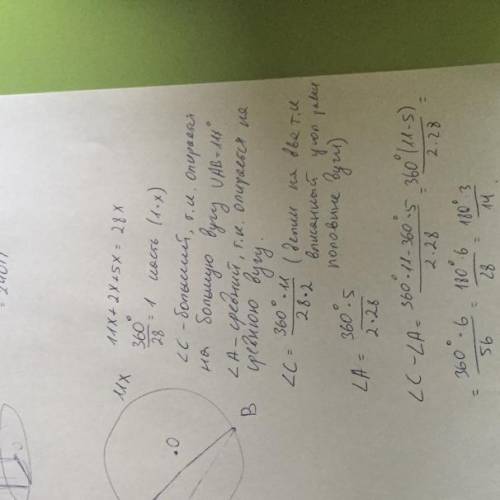 11x+2x+5x=28x
360°/28 = 1 часть (1·x)
∠C-больший, т.и. опирается
на большую дугу ∪AB=11x°
∠A-средний, т.и. опирается на
среднюю дугу.
∠C = 360°·11/28·2 (делим на два т.и.
вписанный угол равен
половине дуги)
∠A = 360°·5/2·28
∠C-∠A = 360°·11-360°·5/2·28 = 360°(11-5)/2·28 =
= 360°·6/56 = 180°·6/28 = 180°·3/14
11x
O
B